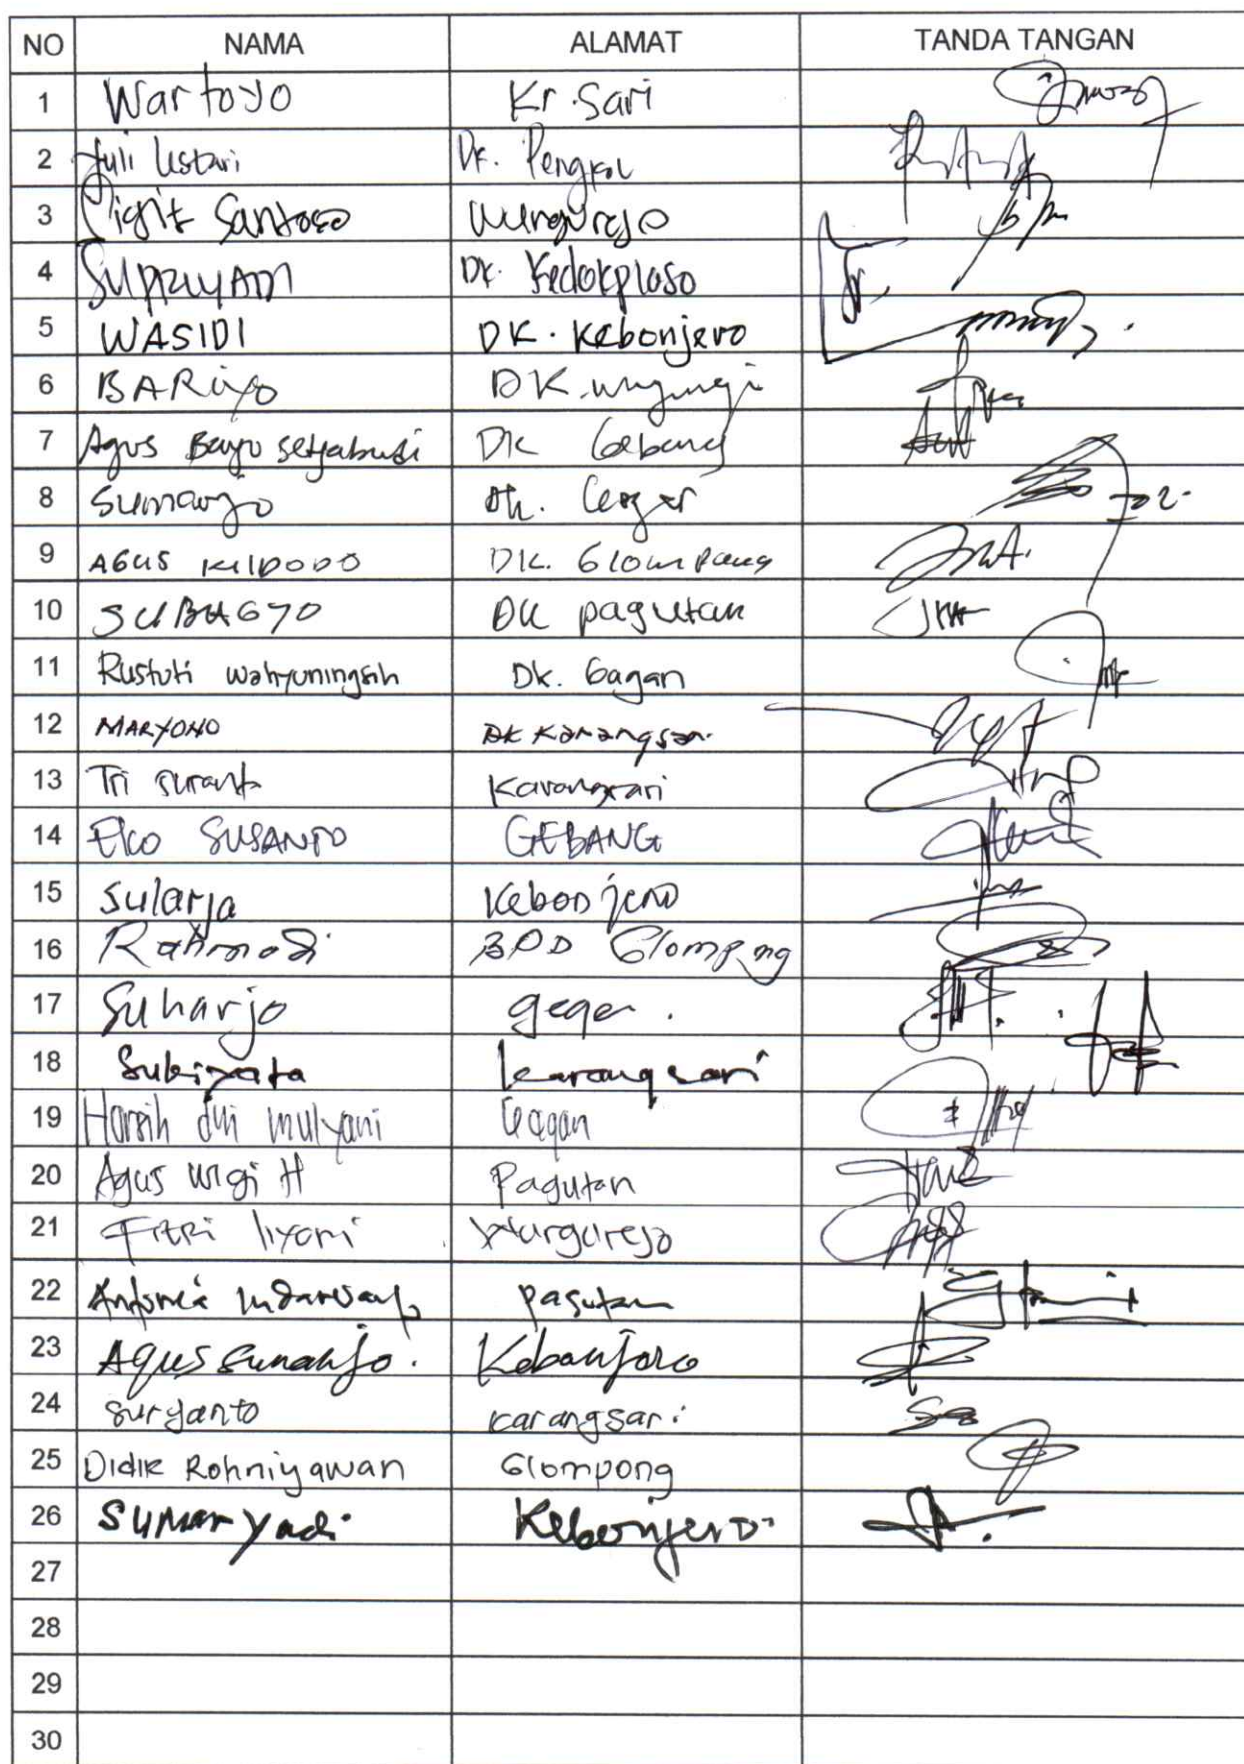 NO NAMA ALAMAT TANDA TANGAN
1 Wartoyo Kr. Sari
2 Yuli Lestari Dk. Pengkol
3 Sigit Santoso Wungurejo
4 SUPRIYADI Dk. Kedokploso
5 WASIDI DK. Kebonjero
6 BARiyo DK.
7 Agus Bayu Setyabudi Dk Gebang
8 Sumarjo Dk.
9 AGUS WIDODO DK. Glompang
10 SUBAGYO DK pagutan
11 Rustuti Wahyuningsih Dk. Gagan
12 MARYONO DK Karangsari
13 Tri Suranto Karangsari
14 Eko SUSANTO GEBANG
15 Sularja Kebonjero
16 Rahmadi BPD Glompong
17 Suharjo geger.
18 karangsari
19 Harsih dwi mulyani Gagan
20 Agus wigi H Pagutan
21 Fitri Iiyani Wungurejo
22 pagutan
23 Agus Sunarjo. Kebonjero
24 Suryanto Karangsari
25 Didik Rohniyawan Glompong
26 SUMARyadi Kebonjero
27
28
29
30